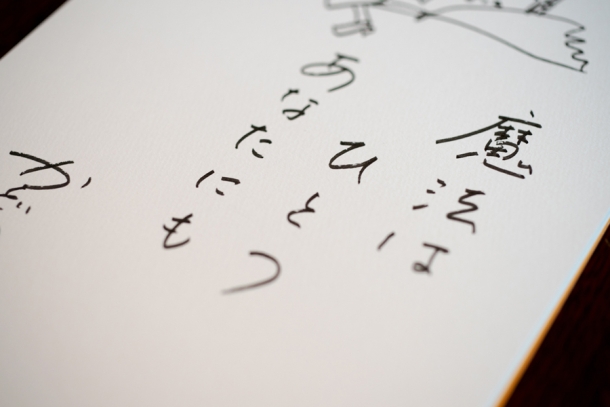 魔法は
ひとつ
あなたにも
か